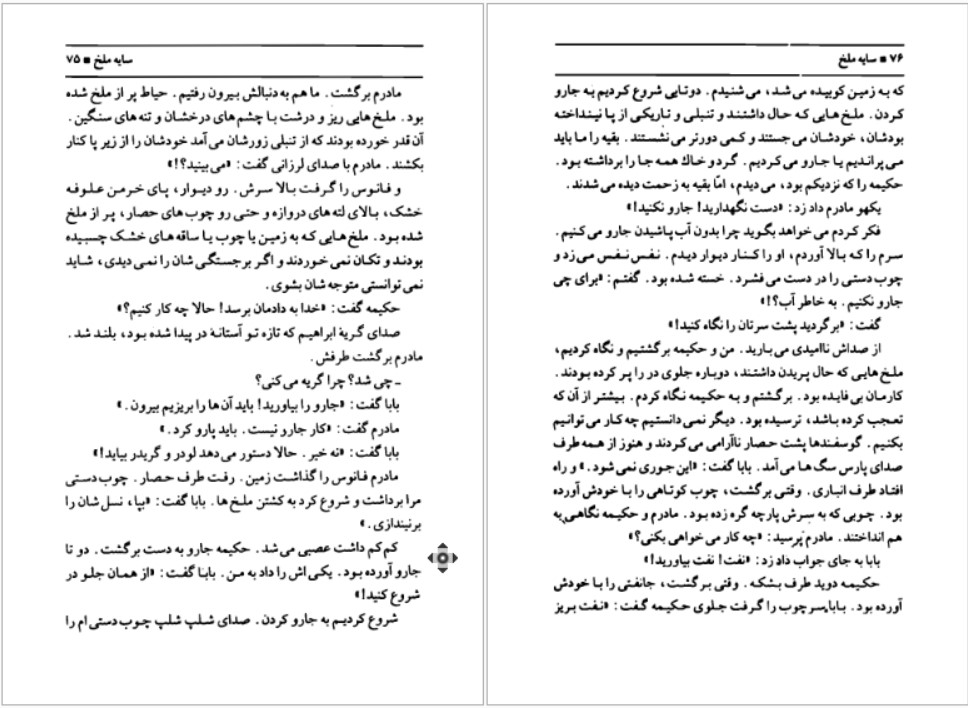 سایه ملخ ■ ۷۵
مادرم برگشت. ما هم به دنبالش بیرون رفتیم. حیاط پر از ملخ شده
بود. ملخ‌هایی ریز و درشت با چشم‌های درخشان و تنه‌های سنگین.
آن قدر خورده بودند که از تنبلی زورشان می‌آمد خودشان را از زیر پا کنار
بکشند. مادرم با صدای لرزانی گفت: «می‌بینید؟!»
و فانوس را گرفت بالا سرش. رو دیوار، پای خرمن علوفه
خشک، بالای لته‌های دروازه و حتی رو چوب‌های حصار، پر از ملخ
شده بود. ملخ‌هایی که به زمین یا چوب یا ساقه‌های خشک چسبیده
بودند و تکان نمی‌خوردند و اگر برجستگی‌شان را نمی‌دیدی، شاید
نمی‌توانستی متوجه‌شان بشوی.
حکیمه گفت: «خدا به دادمان برسد! حالا چه کار کنیم؟»
صدای گریهٔ ابراهیم که تازه تو آستانهٔ در پیدا شده بود، بلند شد.
مادرم برگشت طرفش.
ـ چی شد؟ چرا گریه می‌کنی؟
بابا گفت: «جارو را بیاورید! باید آن‌ها را بریزیم بیرون.»
مادرم گفت: «کار جارو نیست. باید پارو کرد.»
بابا گفت: «نه خیر. حالا دستور می‌دهد لودر و گریدر بیاید!»
مادرم فانوس را گذاشت زمین. رفت طرف حصار. چوب‌دستی
مرا برداشت و شروع کرد به کشتن ملخ‌ها. بابا گفت: «بپا، نسل‌شان را
برنیندازی.»
کم‌کم داشت عصبی می‌شد. حکیمه جارو به دست برگشت. دو تا
جارو آورده بود. یکی‌اش را داد به من. بابا گفت: «از همان جلو در
شروع کنید!»
شروع کردیم به جارو کردن. صدای شلپ شلپ چوب دستی‌ام را
۷۶ ■ سایه ملخ
که به زمین کوبیده می‌شد، می‌شنیدم. دوتایی شروع کردیم به جارو
کردن. ملخ‌هایی که حال داشتند و تنبلی و تاریکی از پا نینداخته
بودشان، خودشان می‌جستند و کمی دورتر می‌نشستند. بقیه را ما باید
می‌پراندیم یا جارو می‌کردیم. گرد و خاك همه جا را برداشته بود.
حکیمه را که نزدیکم بود، می‌دیدم، امّا بقیه به زحمت دیده می‌شدند.
یکهو مادرم داد زد: «دست نگهدارید! جارو نکنید!»
فکر کردم می‌خواهد بگوید چرا بدون آب پاشیدن جارو می‌کنیم.
سرم را که بالا آوردم، او را کنار دیوار دیدم. نفس نفس می‌زد و
چوب دستی را در دست می‌فشرد. خسته شده بود. گفتم: «برای چی
جارو نکنیم. به خاطر آب؟!»
گفت: «برگردید پشت سرتان را نگاه کنید!»
از صداش ناامیدی می‌بارید. من و حکیمه برگشتیم و نگاه کردیم،
ملخ‌هایی که حال پریدن داشتند، دوباره جلوی در را پر کرده بودند.
کارمان بی‌فایده بود. برگشتم و به حکیمه نگاه کردم. بیشتر از آن که
تعجب کرده باشد، ترسیده بود. دیگر نمی‌دانستیم چه کار می‌توانیم
بکنیم. گوسفندها پشت حصار ناآرامی می‌کردند و هنوز از همه طرف
صدای پارس سگ‌ها می‌آمد. بابا گفت: «این‌جوری نمی‌شود.» و راه
افتاد طرف انباری. وقتی برگشت، چوب کوتاهی را با خودش آورده
بود. چوبی که به سرش پارچه گره زده بود. مادرم و حکیمه نگاهی به
هم انداختند. مادرم پرسید: «چه کار می‌خواهی بکنی؟»
بابا به جای جواب داد زد: «نفت! نفت بیاورید!»
حکیمه دوید طرف بشکه. وقتی برگشت، جانفتی را با خودش
آورده بود. بابا سر چوب را گرفت جلوی حکیمه گفت: «نفت بریز